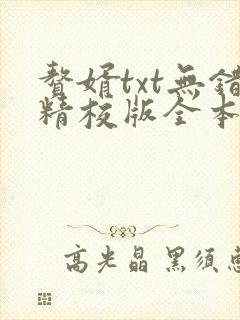 赘婿txt無錯
精校版全本
高光晶 黑須惠